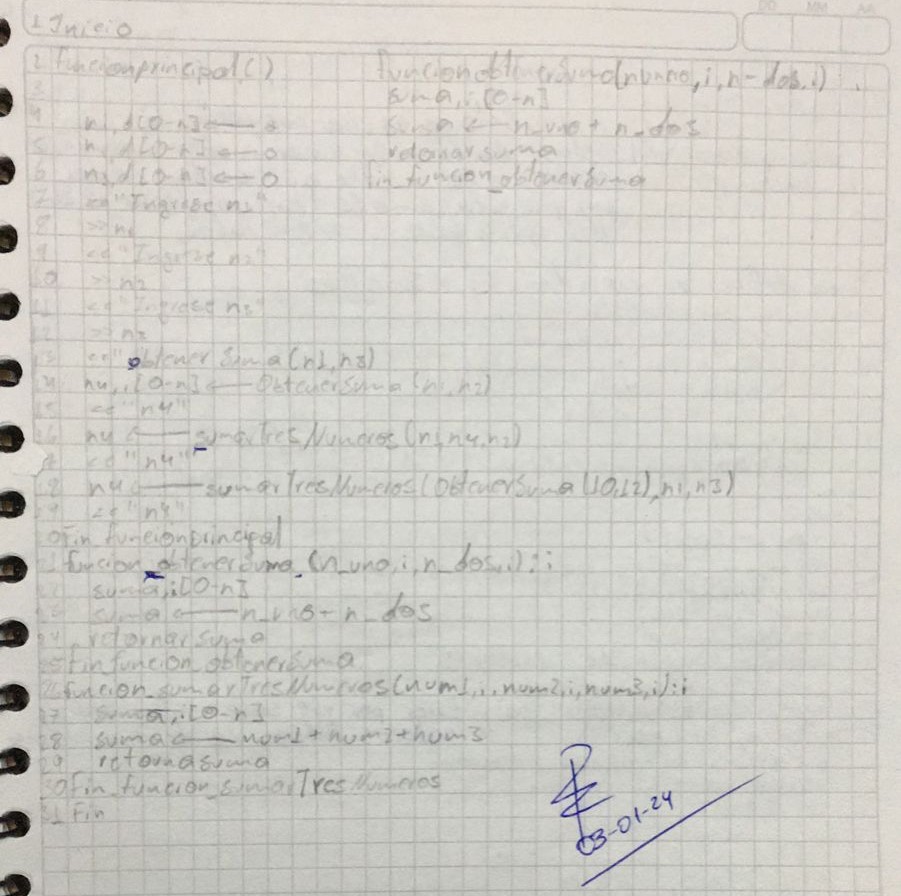 DD MM AA
1 Inicio
2 funcionprincipal()
3
4 n1,i[0-n]<——0
5 n2,i[0-n]<——0
6 n3,i[0-n]<——0
7 <<"Ingrese n1"
8 >>n1
9 <<"Ingrese n2"
10 >>n2
11 <<"Ingrese n3"
12 >>n3
13 <<" obtenerSuma(n1,n3)
14 n4,i[0-n]<——ObtenerSuma(n1,n2)
15 <<"n4"
16 n4<——sumarTresNumeros(n3,n4,n2)
17 <<"n4"
18 n4<——sumarTresNumeros(ObtenerSuma(10,12),n1,n3)
19 <<"n4"
20 Fin_funcionprincipal
21 funcion_obtenerSuma_(n_uno,i,n_dos,i):i
22 suma,i[0-n]
23 suma<——n_uno+n_dos
24 retornar suma
25 Fin_funcion_obtenerSuma
26 funcion_sumarTresNumeros(num1,i,num2,i,num3,i):i
27 suma,i[0-n]
28 suma<——num1+num2+num3
29 retorna suma
30 Fin_funcion_sumarTresNumeros
31 Fin
funcionobtenerSuma(n_uno,i,n-dos,i)
suma,i[0-n]
suma<——n_uno+n_dos
retornar suma
fin_funcion_obtenerSuma
03-01-24